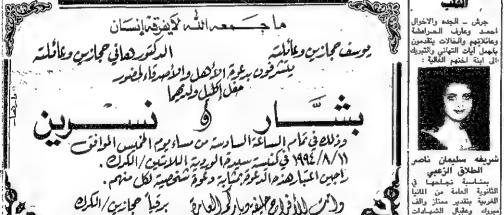 ما جمعه الله لا يفرقه إنسان
يوسف حجازين وعائلته
الدكتور هاني حجازين وعائلته
يتشرفون بدعوة الأهل والأصدقاء لحضور
حفل إكليل ولديهما
بشار و نسرين
وذلك في تمام الساعة السادسة من مساء يوم الخميس الموافق
١١/٨/١٩٩٤ في كنيسة سيدة الوردية اللاتين/الكرك.
راجين اعتبار هذه الدعوة بمثابة دعوة شخصية لكل منهم.
ودامت الأفراح حليفة دياركم العامرة
برقياً حجازين/الكرك
جرش - الجده والاخوال
احمد وعارف
وعائلاتهم والخالات يتقدمون
باجمل آيات التهاني والتبريك
الى ابنة اختهم الغالية :
شريفه سليمان ناصر
الطلاق الزعبي
بمناسبة نجاحها في
الثانوية العامة من المانيا
الغربية بتقدير ممتاز والف
مبروك وعقبال الشهادات